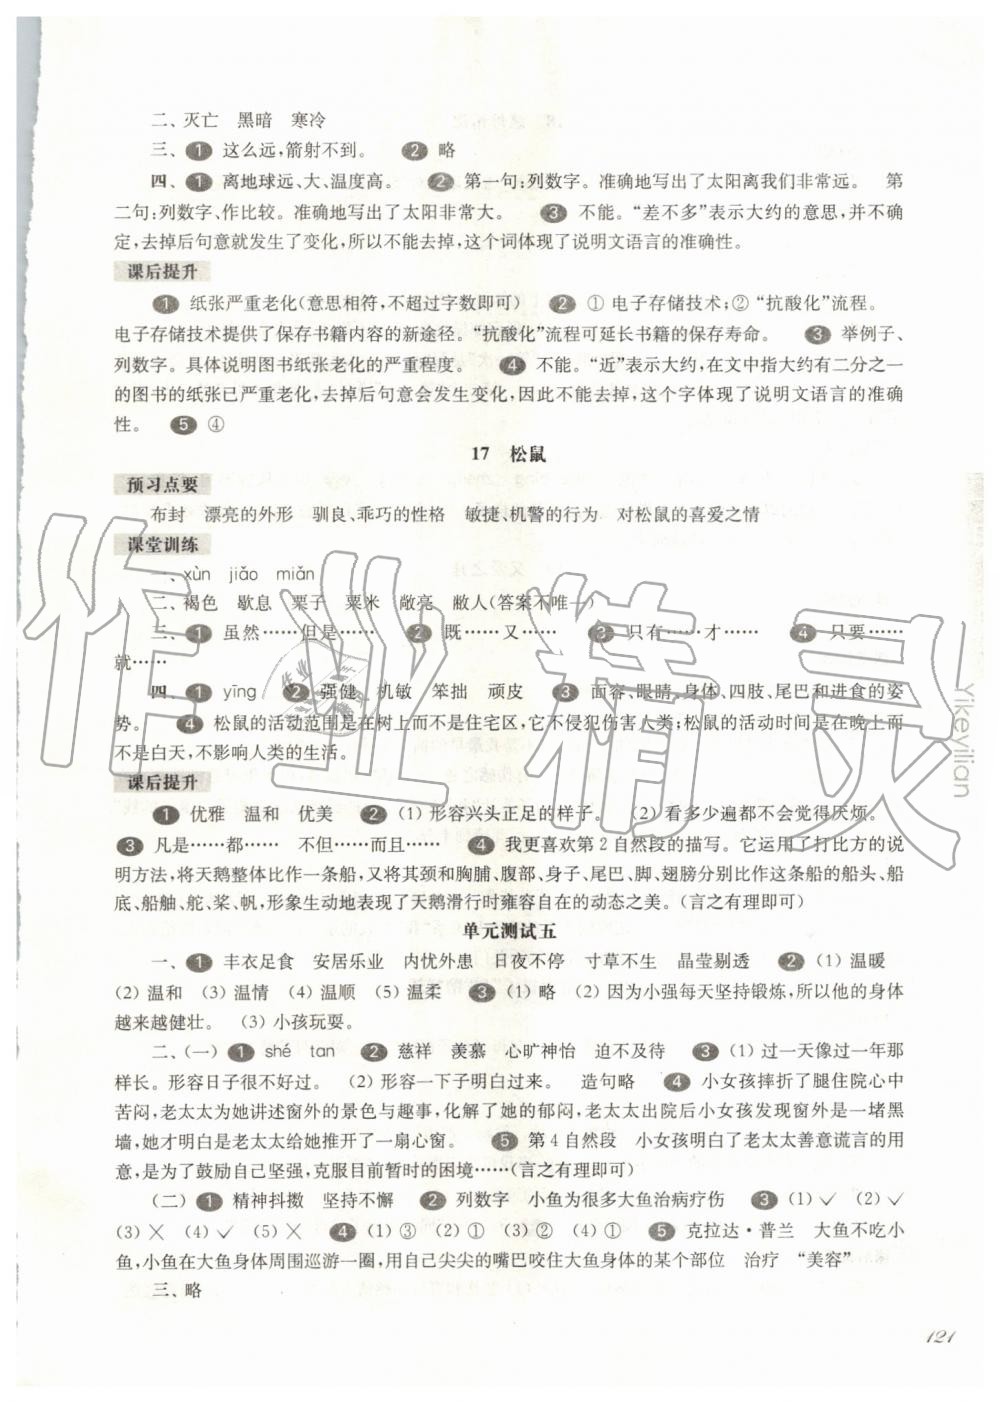 二、灭亡 黑暗 寒冷
三、❶ 这么远,箭射不到。 ❷ 略
四、❶ 离地球远、大、温度高。 ❷ 第一句:列数字。准确地写出了太阳离我们非常远。 第
二句:列数字、作比较。准确地写出了太阳非常大。 ❸ 不能。“差不多”表示大约的意思,并不确
定,去掉后句意就发生了变化,所以不能去掉,这个词体现了说明文语言的准确性。
课后提升
❶ 纸张严重老化(意思相符,不超过字数即可) ❷ ① 电子存储技术;② “抗酸化”流程。
电子存储技术提供了保存书籍内容的新途径。“抗酸化”流程可延长书籍的保存寿命。 ❸ 举例子、
列数字。具体说明图书纸张老化的严重程度。 ❹ 不能。“近”表示大约,在文中指大约有二分之一
的图书的纸张已严重老化,去掉后句意会发生变化,因此不能去掉,这个字体现了说明文语言的准确
性。 ❺ ④
17 松鼠
预习点要
布封 漂亮的外形 驯良、乖巧的性格 敏捷、机警的行为 对松鼠的喜爱之情
课堂训练
一、xùn jiǎo miǎn
二、褐色 歇息 栗子 粟米 敞亮 敝人(答案不唯一)
三、❶ 虽然……但是…… ❷ 既……又…… ❸ 只有……才…… ❹ 只要……
就……
四、❶ yīng ❷ 强健 机敏 笨拙 顽皮 ❸ 面容、眼睛、身体、四肢、尾巴和进食的姿
势。 ❹ 松鼠的活动范围是在树上而不是住宅区,它不侵犯伤害人类;松鼠的活动时间是在晚上而
不是白天,不影响人类的生活。
课后提升
❶ 优雅 温和 优美 ❷ (1) 形容兴头正足的样子。 (2) 看多少遍都不会觉得厌烦。
❸ 凡是……都…… 不但……而且…… ❹ 我更喜欢第 2 自然段的描写。它运用了打比方的说
明方法,将天鹅整体比作一条船,又将其颈和胸脯、腹部、身子、尾巴、脚、翅膀分别比作这条船的船头、船
底、船舳、舵、桨、帆,形象生动地表现了天鹅滑行时雍容自在的动态之美。(言之有理即可)
单元测试五
一、❶ 丰衣足食 安居乐业 内忧外患 日夜不停 寸草不生 晶莹剔透 ❷ (1) 温暖
(2) 温和 (3) 温情 (4) 温顺 (5) 温柔 ❸ (1) 略 (2) 因为小强每天坚持锻炼,所以他的身体
越来越健壮。 (3) 小孩玩耍。
二、(一) ❶ shé tan ❷ 慈祥 羡慕 心旷神怡 迫不及待 ❸ (1) 过一天像过一年那
样长。形容日子很不好过。 (2) 形容一下子明白过来。 造句略 ❹ 小女孩摔折了腿住院心中
苦闷,老太太为她讲述窗外的景色与趣事,化解了她的郁闷。老太太出院后小女孩发现窗外是一堵黑
墙,她才明白是老太太给她推开了一扇心窗。 ❺ 第 4 自然段 小女孩明白了老太太善意谎言的用
意,是为了鼓励自己坚强,克服目前暂时的困境……(言之有理即可)
(二) ❶ 精神抖擞 坚持不懈 ❷ 列数字 小鱼为很多大鱼治病疗伤 ❸ (1) √ (2) √
(3) × (4) √ (5) × ❹ (1) ③ (2) ① (3) ② (4) ① ❺ 克拉达·普兰 大鱼不吃小
鱼,小鱼在大鱼身体周围巡游一圈,用自己尖尖的嘴巴咬住大鱼身体的某个部位 治疗 “美容”
三、略
121
Yikeyilian
作业精灵